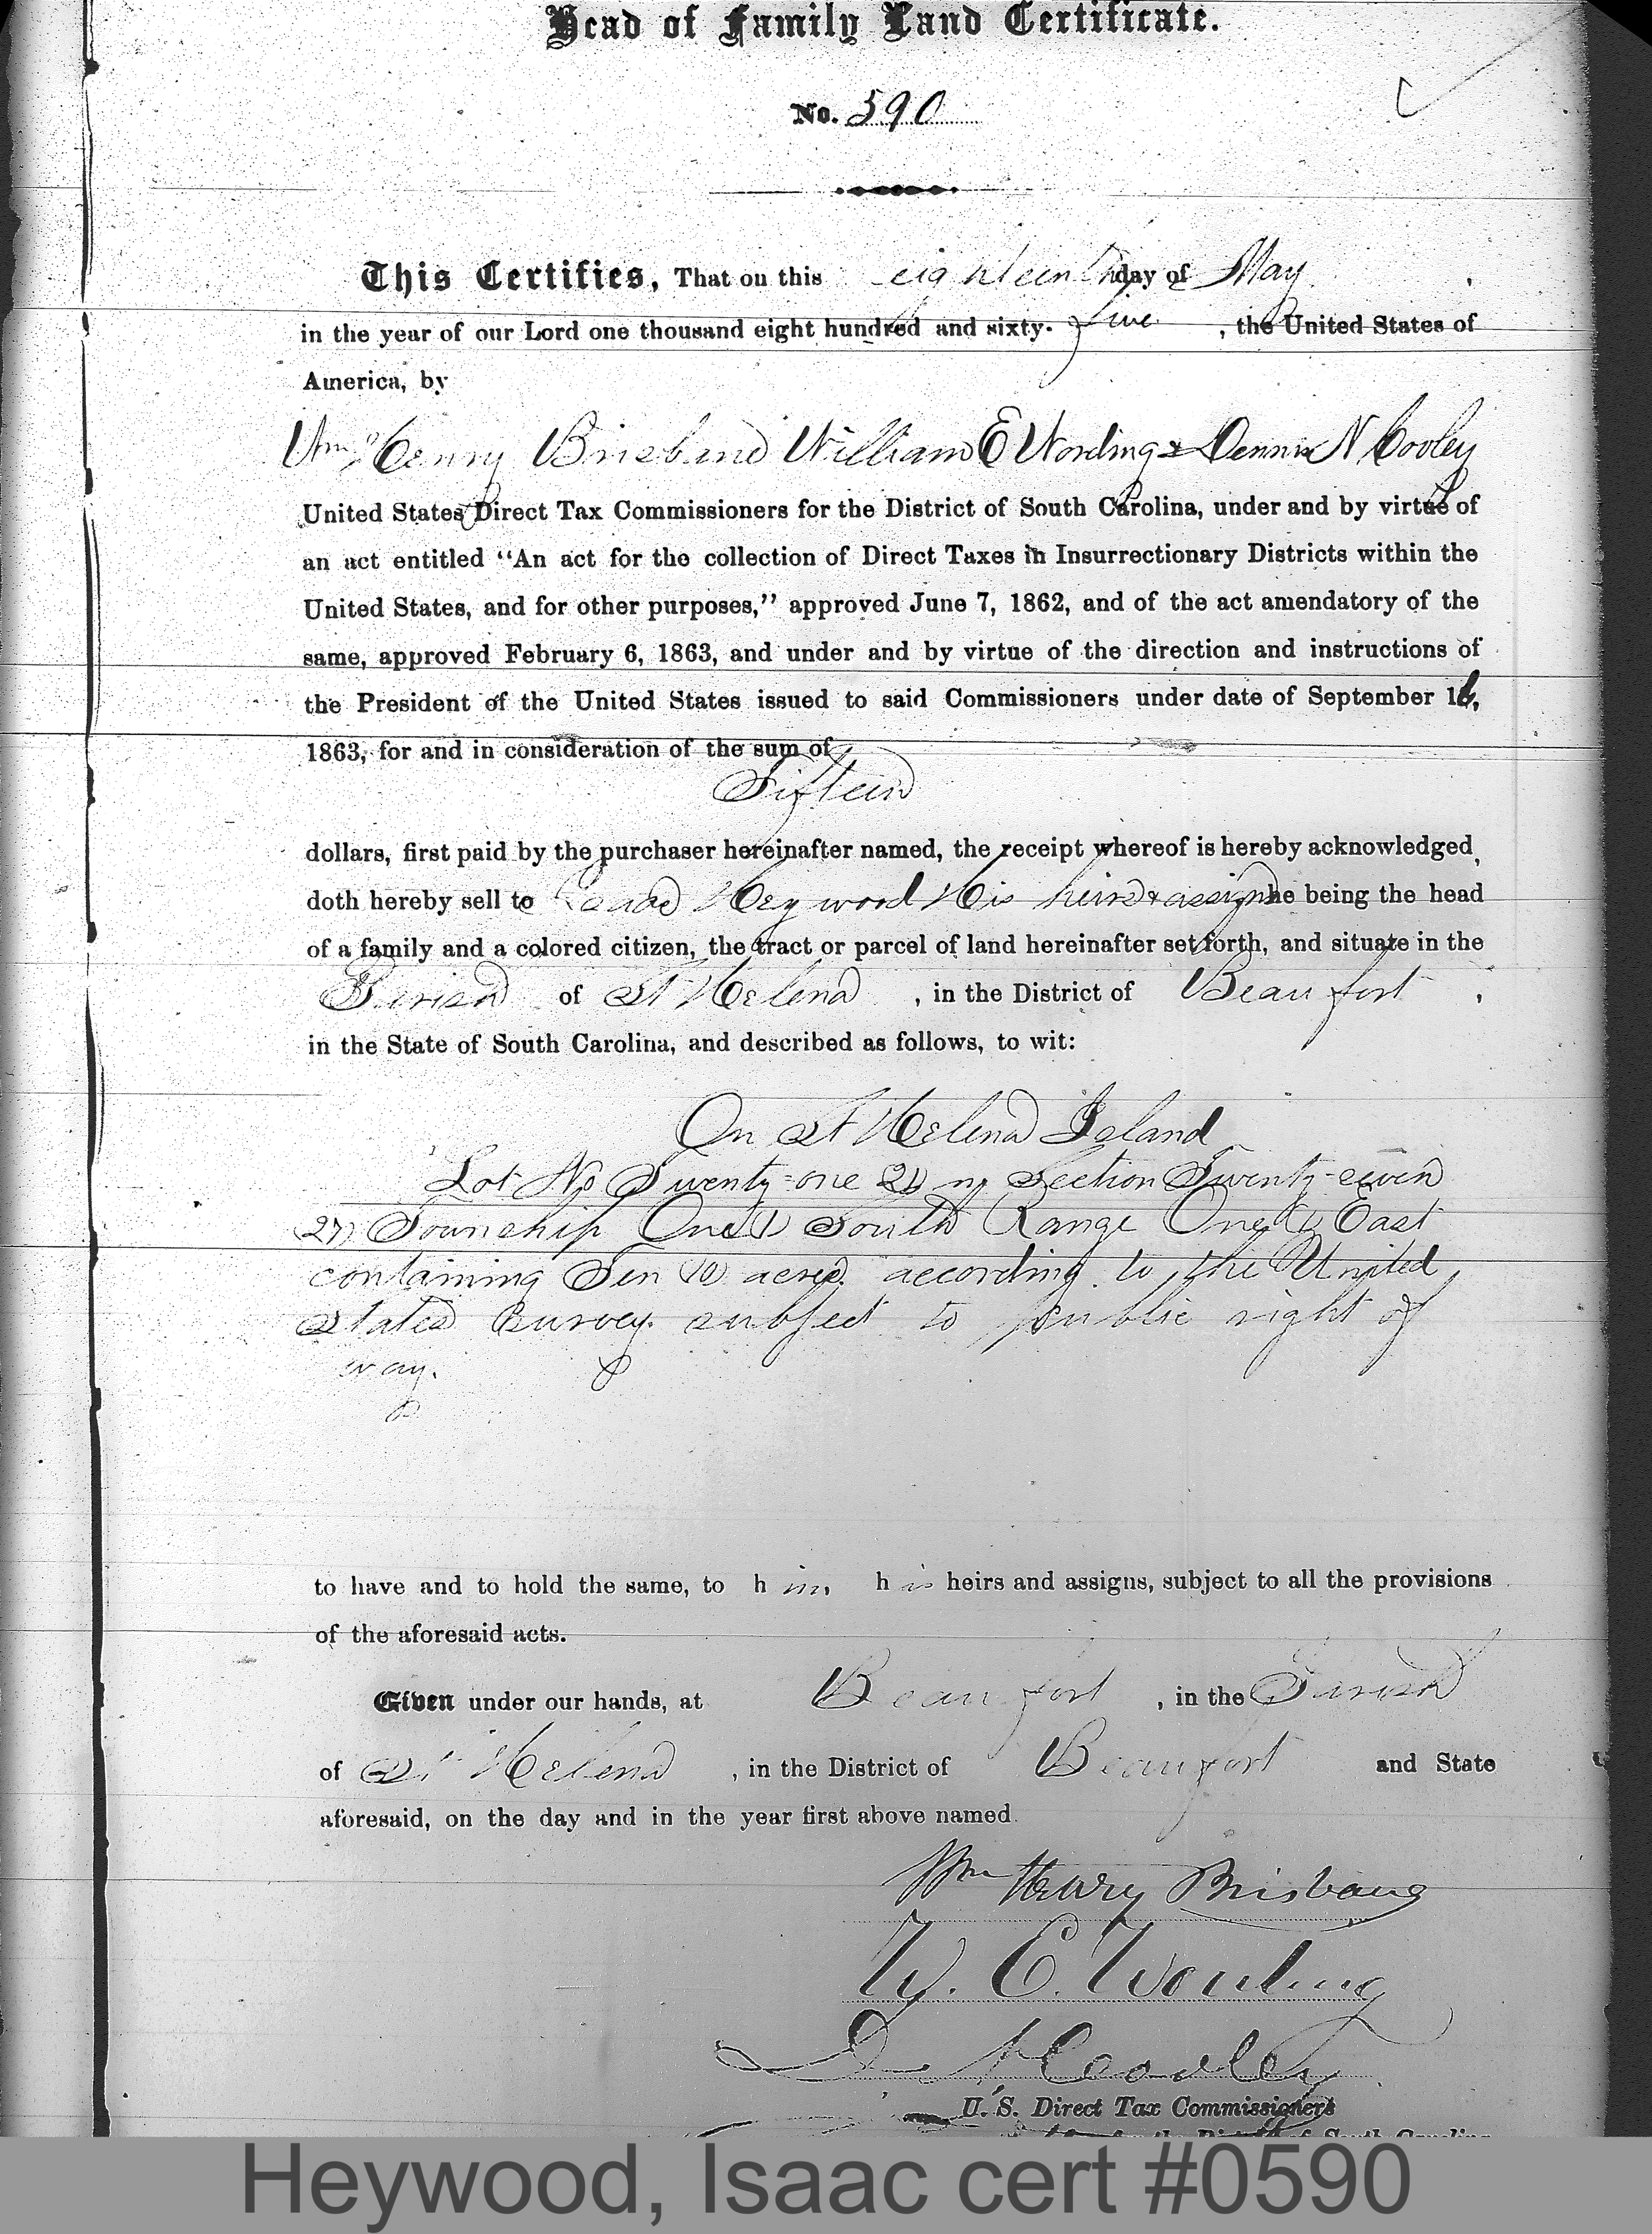 Head of Family Land Certificate.
No. 590
This Certifies, That on this eighteenth day of May,
in the year of our Lord one thousand eight hundred and sixty-five, the United States of
America, by
Wm Henry Brisbane William E Wording & Dennis N Cooley
United States Direct Tax Commissioners for the District of South Carolina, under and by virtue of
an act entitled "An act for the collection of Direct Taxes in Insurrectionary Districts within the
United States, and for other purposes," approved June 7, 1862, and of the act amendatory of the
same, approved February 6, 1863, and under and by virtue of the direction and instructions of
the President of the United States issued to said Commissioners under date of September 16,
1863, for and in consideration of the sum of
Fifteen
dollars, first paid by the purchaser hereinafter named, the receipt whereof is hereby acknowledged,
doth hereby sell to Isaac Heywood His heirs & assigns he being the head
of a family and a colored citizen, the tract or parcel of land hereinafter set forth, and situate in the
Parish of St Helena, in the District of Beaufort,
in the State of South Carolina, and described as follows, to wit:
On St Helena Island
Lot No Twenty-one 21) in Section Twenty-seven
27) Township One 1) South Range One (1) East
containing Ten (10) acres. according to the United
States Survey. subject to public right of
way.
to have and to hold the same, to him, his heirs and assigns, subject to all the provisions
of the aforesaid acts.
Given under our hands, at Beaufort, in the Parish
of St Helena, in the District of Beaufort and State
aforesaid, on the day and in the year first above named.
Wm Henry Brisbane
W. E. Wording
D N Cooley
U. S. Direct Tax Commissioners
for the District of South Carolina
Heywood, Isaac cert #0590